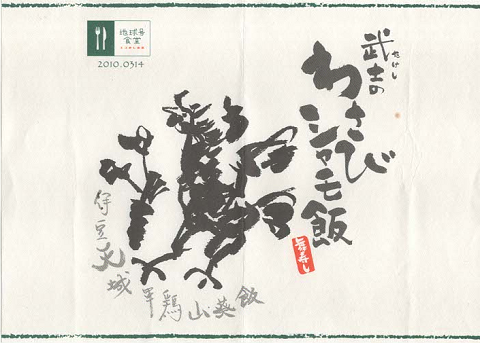 地球号
食堂
2010.0314
武士の
たけし
わさび
シャモ飯
舞寿し
伊豆天城軍鶏山葵飯